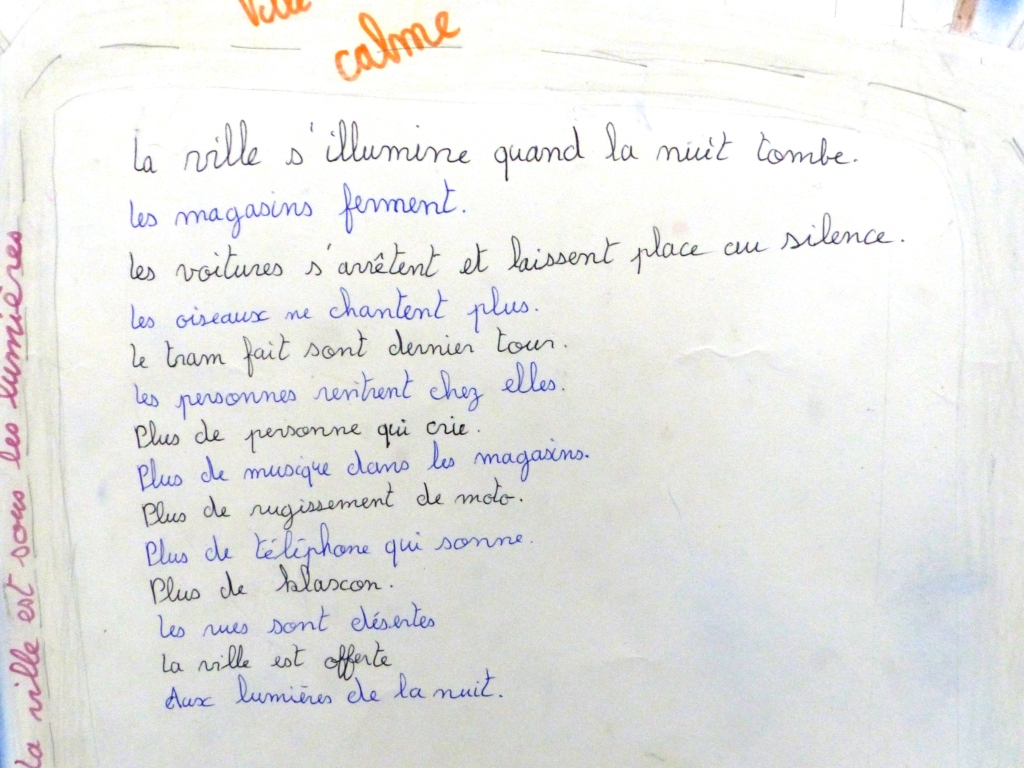 calme
La ville s'illumine quand la nuit tombe.
Les magasins ferment.
Les voitures s'arrêtent et laissent place au silence.
Les oiseaux ne chantent plus.
Le tram fait sont dernier tour.
Les personnes rentrent chez elles.
Plus de personne qui crie.
Plus de musique dans les magasins.
Plus de rugissement de moto.
Plus de téléphone qui sonne.
Plus de klaxon.
Les rues sont désertes
La ville est offerte
Aux lumières de la nuit.
La ville est sous les lumières